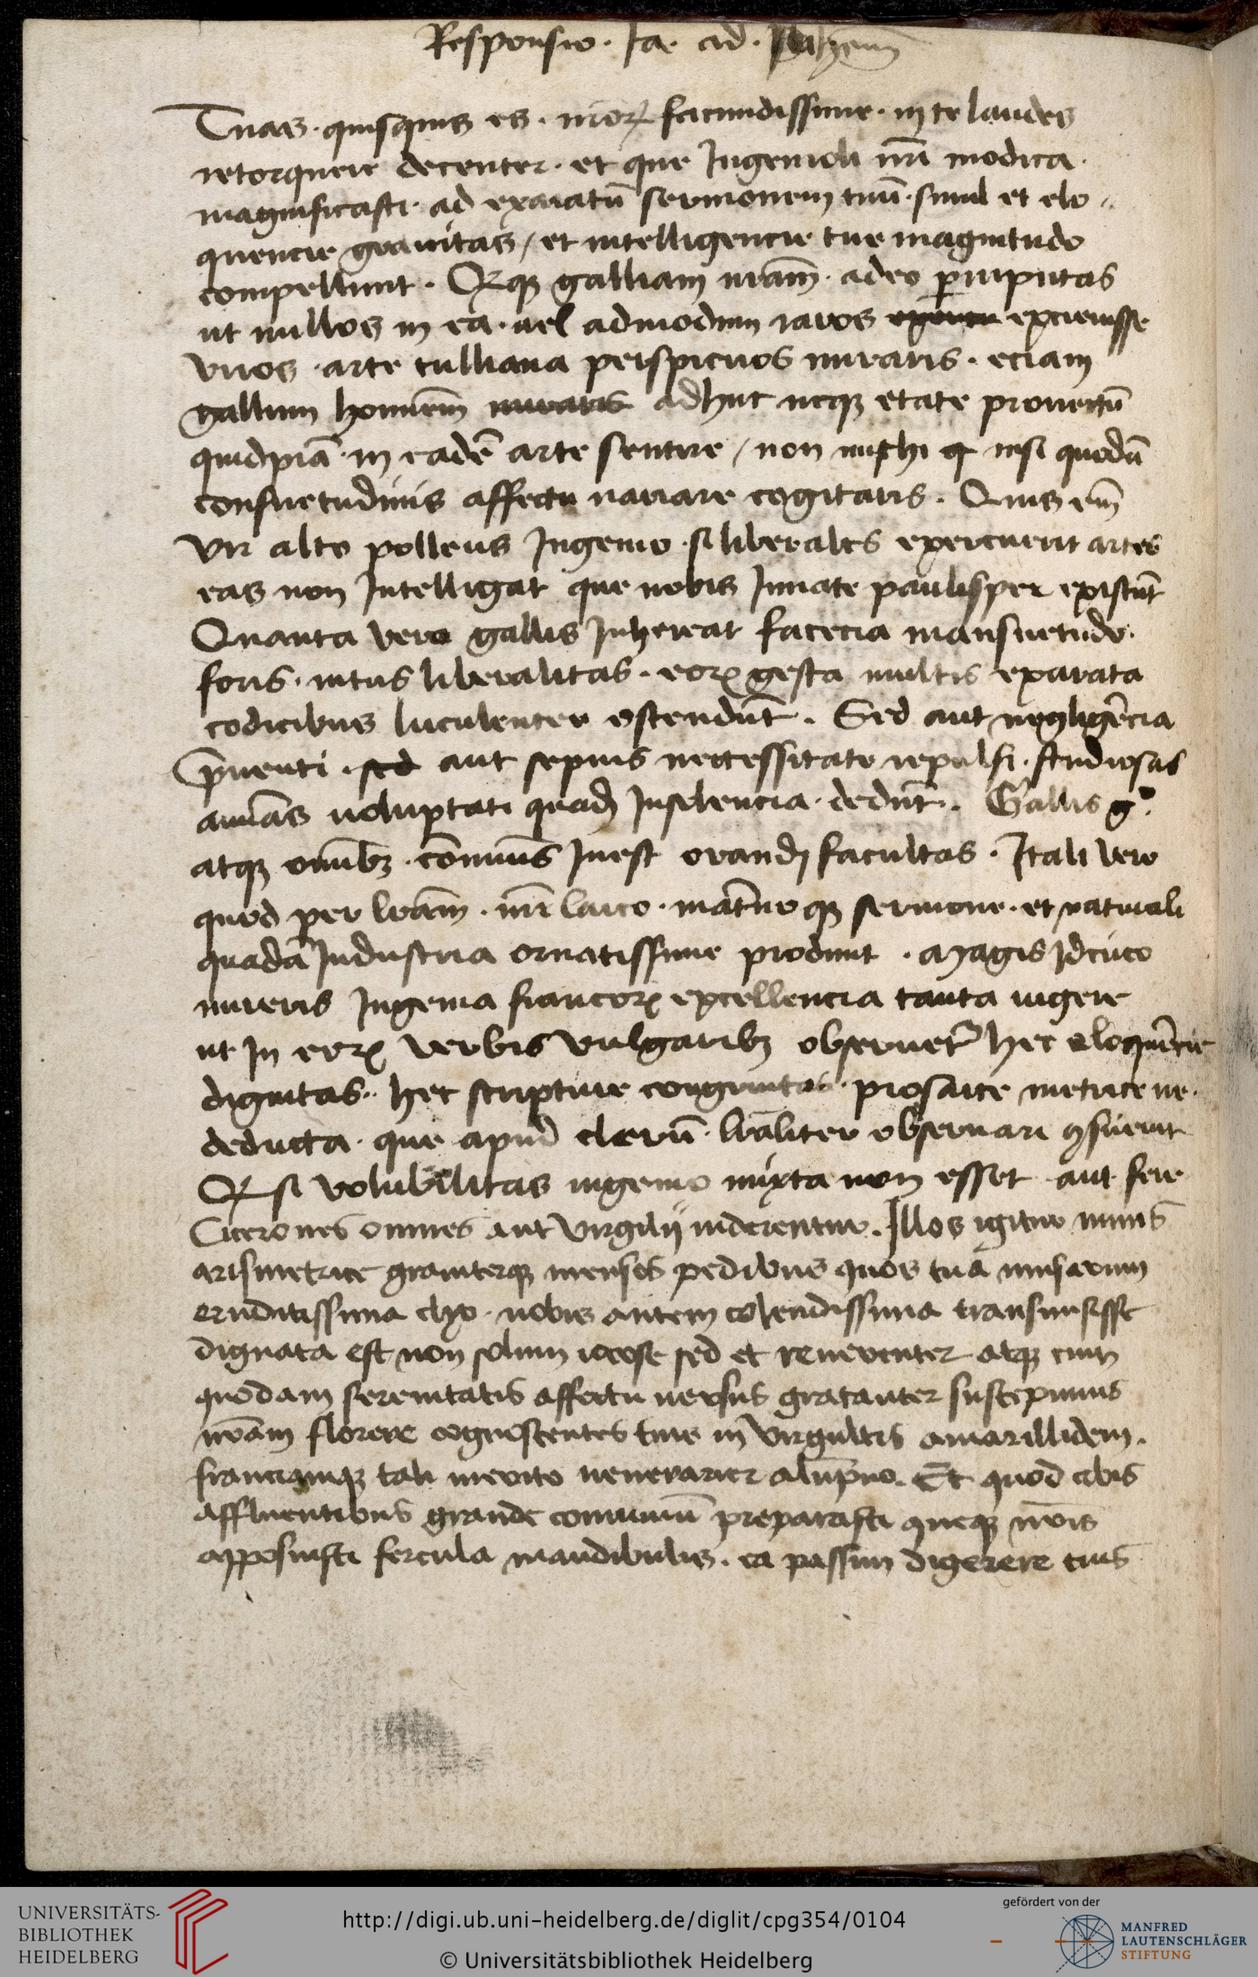 Responsio. Ja. ad.
Tuas. quisquis es. facundissime. in te laudes
retorquere decenter. et que Ingenioli nr̄i modica.
magnificasti. ad exaratū sermonem tuū. simul et elo
quencie gravitas / et intelligencie tue magnitudo
compellunt. galliam nr̄am. adeo
ut nullos in ea. vel admodum raros excrevisse
viros. arte tulliana perspicuos miraris. eciam
gallum hominem adhuc neqꝫ etate provectū
quidpiā. in eadē arte sentire / non michi nisi quodā
consuetudinis affectu narrare cogitatis. Quis em̄
vir alto pollens Ingenio. si liberales exercuerit artes
eas non Intelligat que nobis Innate paulisper existūt
Quanta vero gallis Inhereat facecia mansuetudo.
foris. intus liberalitas. eorꝝ gesta multis exarata
codicibus luculenter ostendūt. Sed aut negligēcia
p̄venti. sed aut sepius necessitate repulsi. studiosas
volupᵱtati quadā Insolencia. dedūt. Gallis gͦ.
atqꝫ omībꝫ. cōmunis Inest orandi facultas. Itali vero
quod per. nr̄i laico. mat̄noqꝫ sermone. et naturali
quadā Industria ornatissime produnt. Magis Idcirco
mireris Ingenia francorꝝ excellencia tanta vigere
ut In eorꝝ verbis vulgaribꝫ observet᷑ hec eloquēcie
dignitas. hec scripture congruitas. prosaice metrice ve.
deducta. que apud clerū. observari
si volubilitas ingenio mixta non esset aut fere
Cicerones omnes aut Virgilij viderentur. Illos igitur
arismetrice graviterqꝫ mensos pedibus quos tua musarum
eruditissima clyo. nobis autem colendissima transmisisse
dignata est non solum iocose sed et reverenter atqꝫ cum
quodam serenitatis affectu versus gratanter suscepimus
florere cognoscentes tuis in virgultis amarillidem.
tali merito venerarier alūpno. Et quod cibis
affluentibus grande conviviū preparasti
apposuisti fercula mandibulis. ea passim digerere tuis
UNIVERSITÄTS-
BIBLIOTHEK
HEIDELBERG
http://digi.ub.uni-heidelberg.de/diglit/cpg354/0104
© Universitätsbibliothek Heidelberg
gefördert von der
MANFRED
LAUTENSCHLÄGER
STIFTUNG